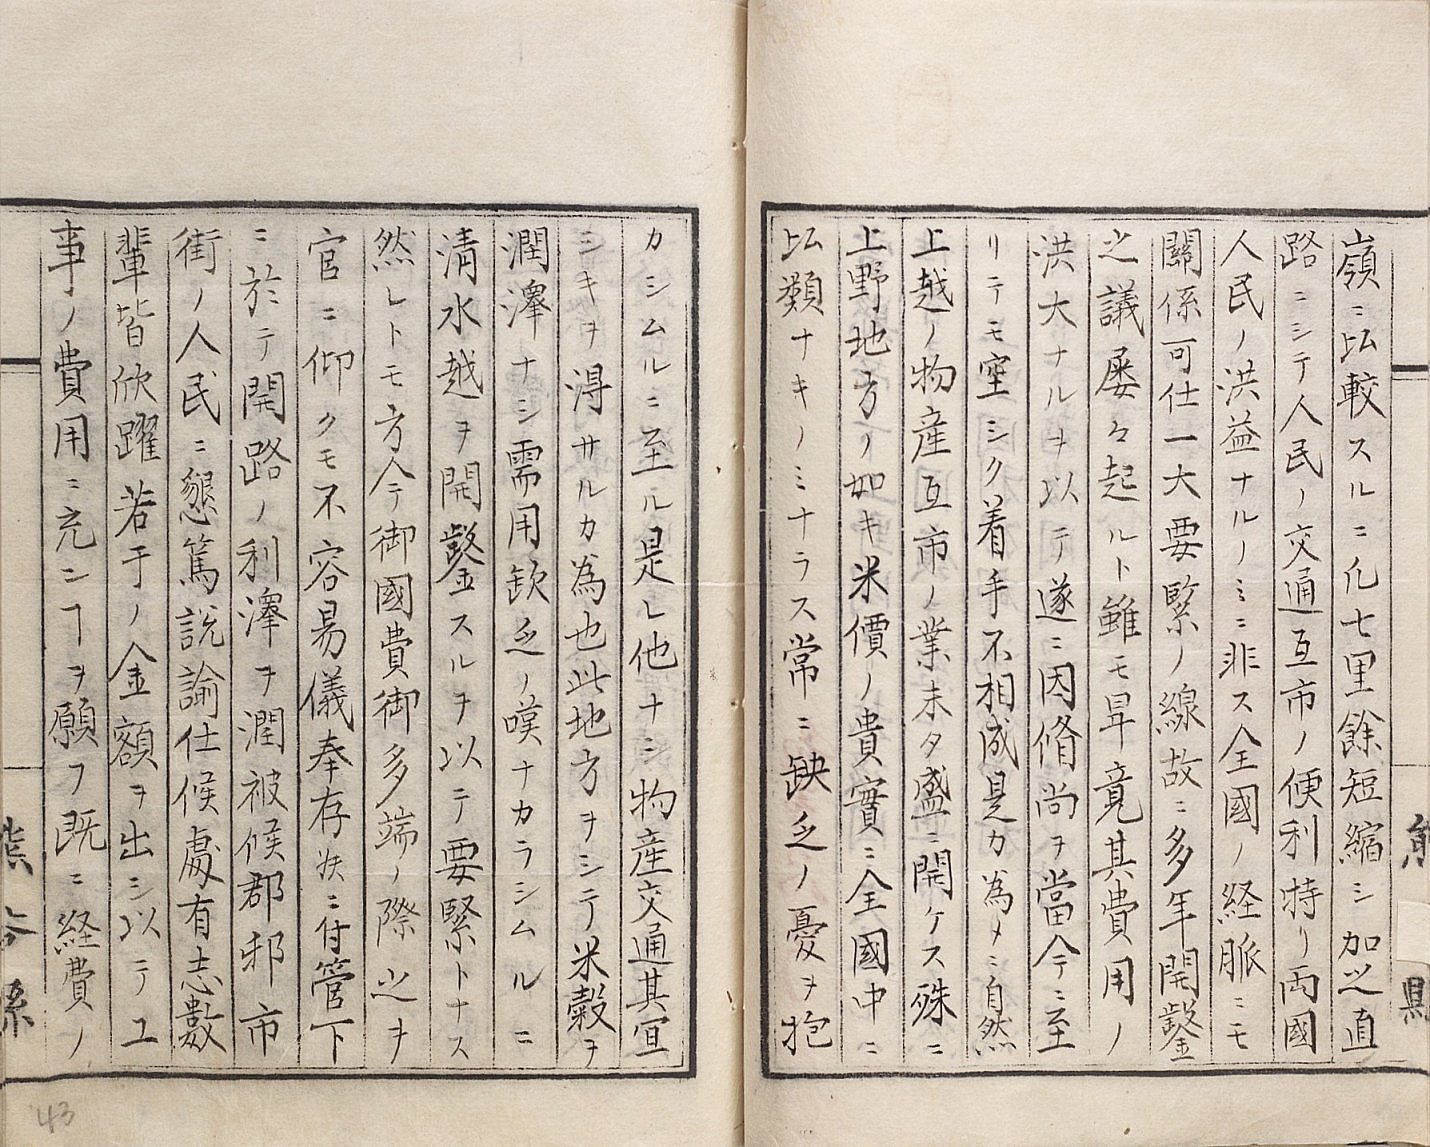 嶺ニ比較スルニ凢七里餘短縮シ加之直
路ニシテ人民ノ交通互市ノ便利特リ両國
人民ノ洪益ナルノミニ非ス全國ノ経脈ニモ
關係可仕一大要緊ノ線故ニ多年開鑿
之議屡々起ルト雖モ畢竟其費用ノ
洪大ナルヲ以テ遂ニ因脩尚ヲ當今ニ至
リテモ空シク着手不相成是カ為メニ自然
上越ノ物産互市ノ業未タ盛ニ開ケス殊ニ
上野地方ノ如キ米價ノ貴實ニ全國中ニ
比類ナキノミナラス常ニ缺乏ノ憂ヲ抱
カシムルニ至ル是レ他ナシ物産交通其宜
シキヲ得サルカ為也此地方ヲシテ米穀ヲ
潤澤ナシ需用欽乏ノ嘆ナカラシムルニ
清水越ヲ開鑿スルヲ以テ要緊トナス
然レトモ方今御國費御多端ノ際之ヲ
官ニ仰クモ不容易儀奉存候ニ付管下
ニ於テ開路ノ利澤ヲ潤被候郡邨市
街ノ人民ニ懇篤説諭仕候處有志數
輩皆欣躍若干ノ金額ヲ出シ以テ工
事ノ費用ニ充ンヿヲ願フ既ニ経費ノ
熊谷縣
43